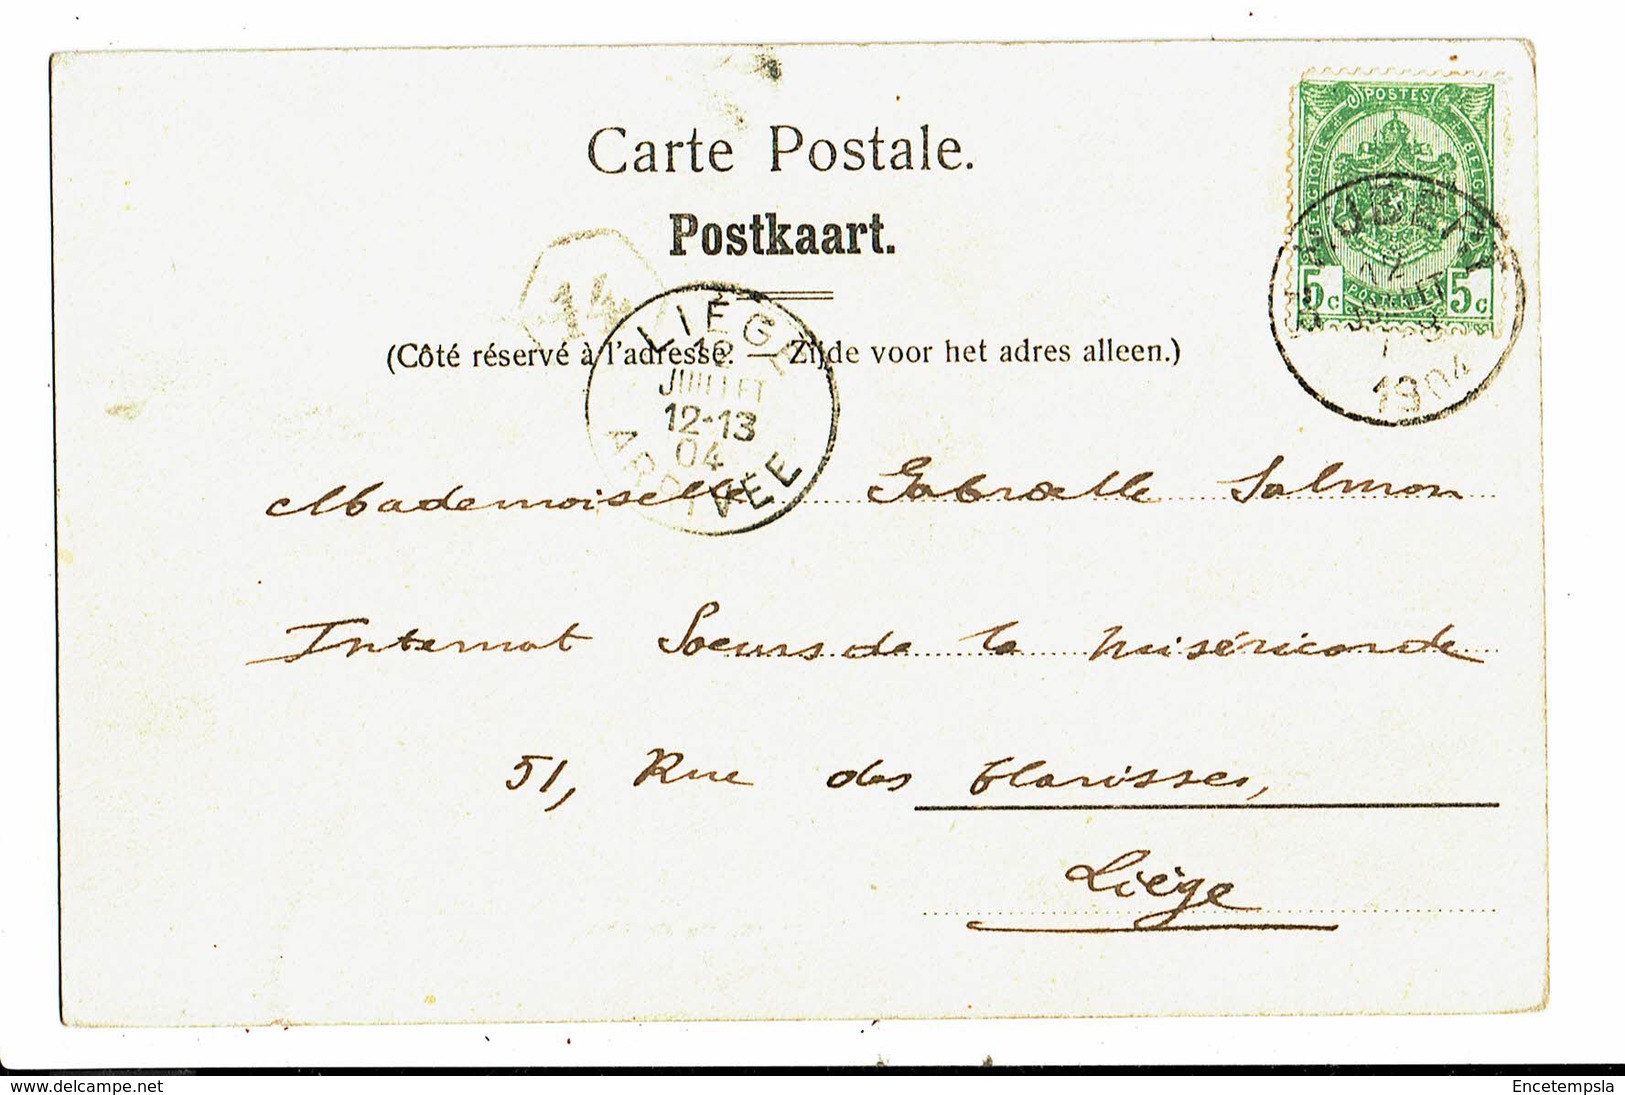 Carte Postale.
Postkaart.
(Côté réservé à l'adresse. — Zijde voor het adres alleen.)
POSTES
BELGIQUE BELGIË
POSTERIJEN
5c 5c
1904
14
LIÈGE
12
JUILLET
12-13
04
ARRIVÉE
Mademoiselle Gabrielle Salmon
Internat Soeurs de la miséricorde
51, Rue des Clarisses,
Liège
www.delcampe.net
Encetempsla